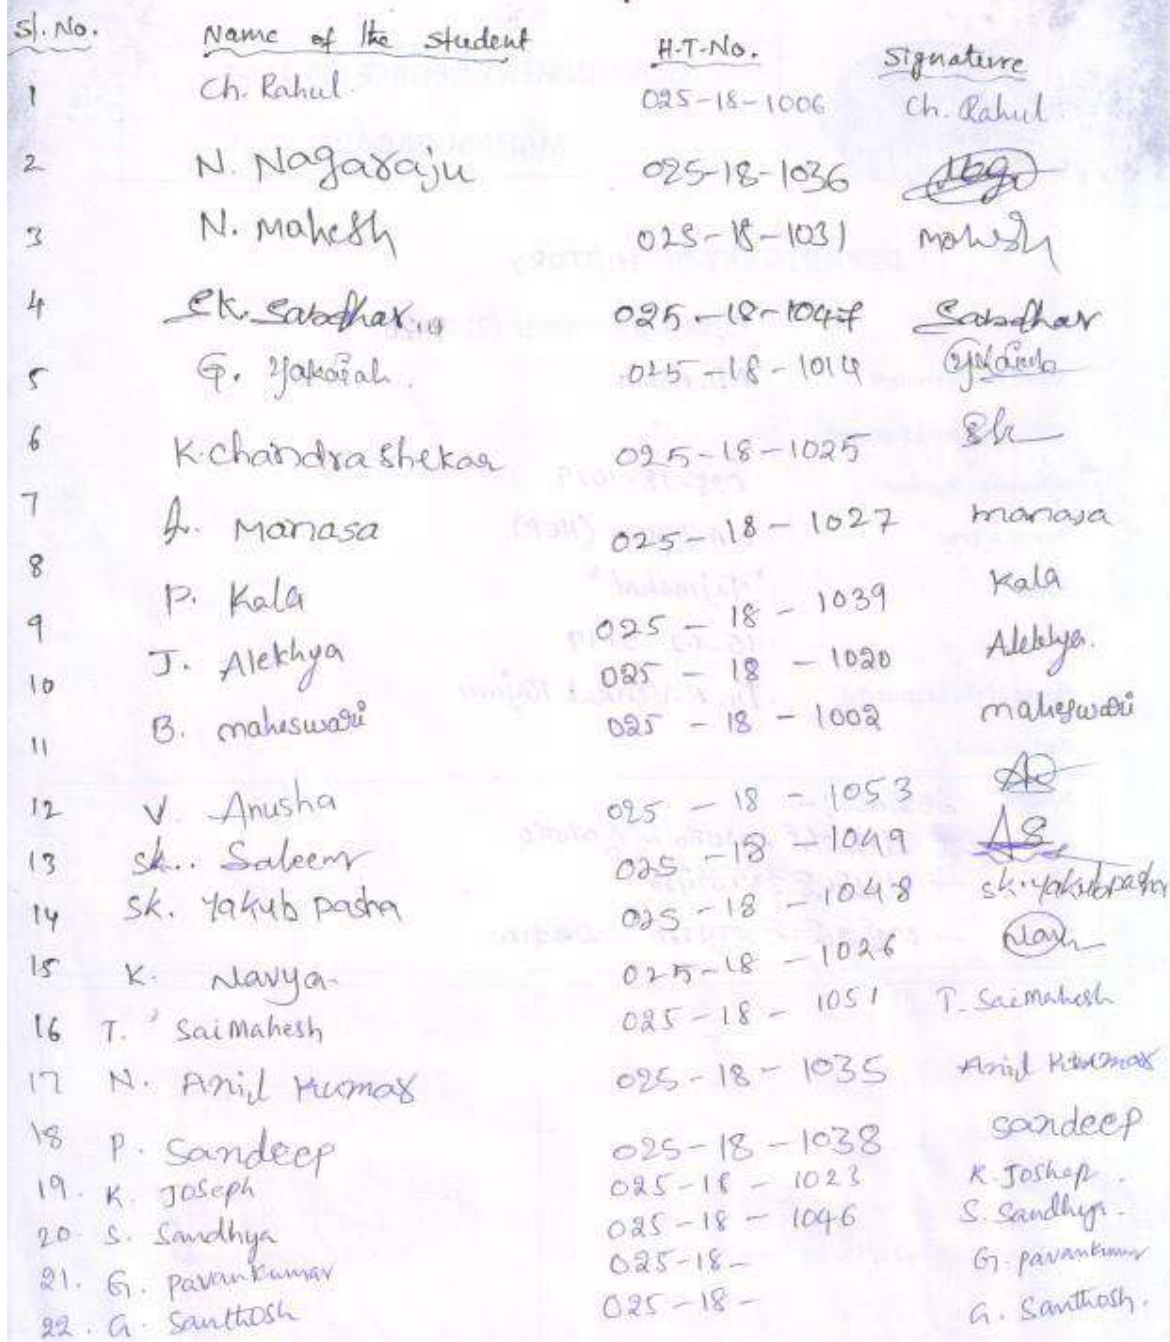 Sl. No. Name of the student H.T.No. Signature
1 Ch. Rahul 025-18-1006 Ch. Rahul
2 N. Nagaraju 025-18-1036
3 N. Mahesh 025-18-1031 Mahesh
4 SK. Sabdhar 025-18-1047 Sabdhar
5 G. Yakaiah. 025-18-1014
6 K.chandrashekar 025-18-1025
7 A. Manasa 025-18-1027 manasa
8 P. Kala 025-18-1039 Kala
9 J. Alekhya 025-18-1020 Alekhya.
10 B. maheswari 025-18-1002 maheswari
11
12 V. Anusha 025-18-1053
13 Sk.. Saleem 025-18-1049
14 SK. Yakub pasha 025-18-1048 SK. Yakub pasha
15 K. Navya 025-18-1026
16 T. SaiMahesh 025-18-1051 T. SaiMahesh
17 N. Anil Kumar 025-18-1035 Anil Kumar
18 P. Sandeep 025-18-1038 Sandeep
19. K. Joseph 025-18-1023 K. Joshep.
20 S. Sandhya 025-18-1046 S. Sandhya.
21. G. pavankumar 025-18- G. pavankumar
22. G. Santhosh 025-18- G. Santhosh.